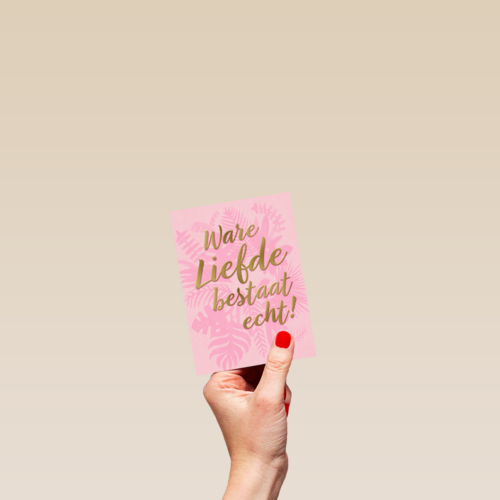 Ware
Liefde
bestaat
echt!